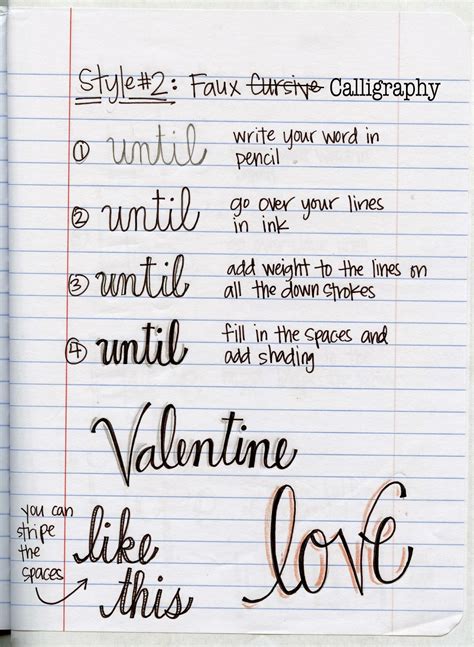 Style #2: Faux Cursive Calligraphy
① until write your word in
pencil
② until go over your lines
in ink
③ until add weight to the lines on
all the down strokes
④ until fill in the spaces and
add shading
Valentine
you can
stripe
the
spaces
like
this
love